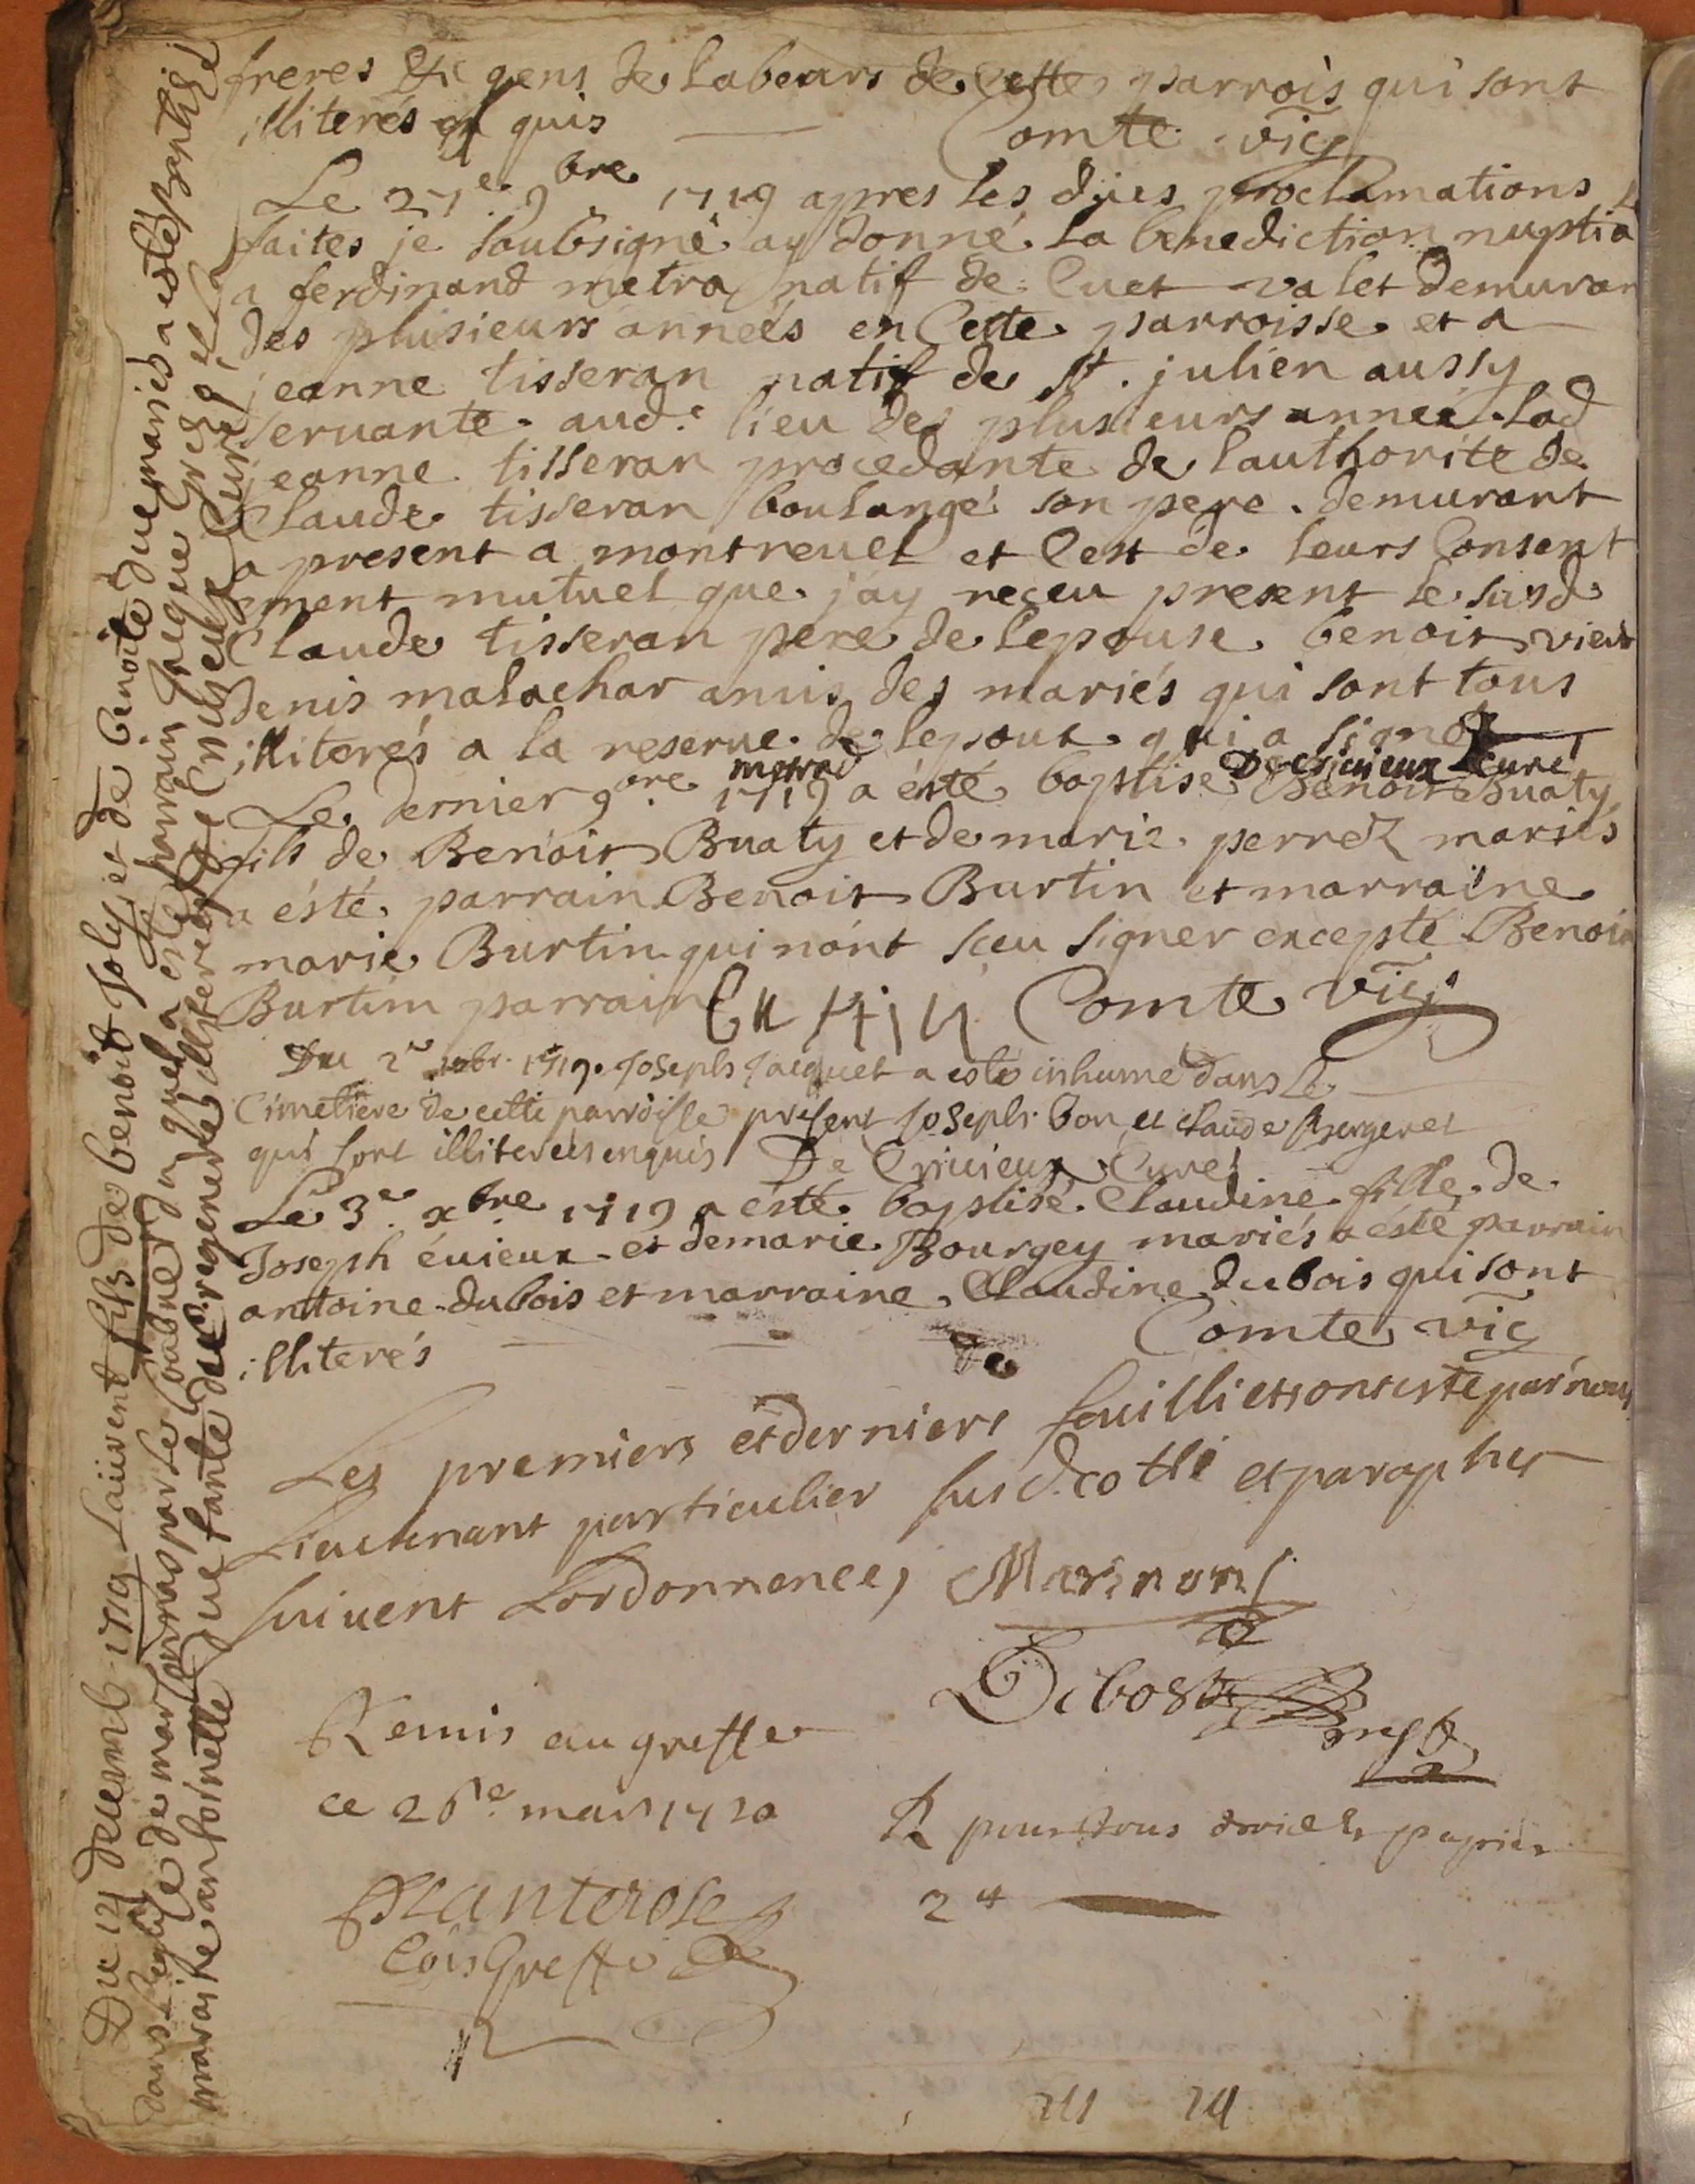 freres &c gens de labeurs de cette parrois qui sont
illiterés quis Comte vic
Le 27e 9bre 1719 apres les düés proclamations
faites je soubsigné ay donné la benediction nuptia
a ferdinand metra natif de Cuet valet demuran
des plusieurs années en Cette parroisse et a
jeanne tisseran natif de st. julien aussy
servante aud.e lieu des plusieurs année lad
jeanne tisseran procedante de lauthorité de
Claude tisseran boulangé son pere demurant
a present a montreuel et Cest de leurs Consent
ement mutuel que jay reçeu present le susd
Claude tisseran pere de lepouse benoit vieux
denis malachar amis des mariés qui sont tous
illiterés a la reserve de lepoux qui a signé
metrad De Criuieux Curé
Le dernier 9bre 1719 a esté baptisé Benoit Buaty
fils de Benoit Buaty et de marie perret mariés
a ésté parrain Benoit Burtin et marraine
marie Burtin qui nont sceu signer excepté Benoit
Burtin parrain Comte vic
Du 2e 1719 Joseph Jacquet a esté inhumé dans Le
Cimetiere de cette parroisse present Joseph bon et claude Bergeret
qui sont illiterés enquis De Criuieux Curé
Le 3e xbre 1719 a ésté baptisé Claudine fille de
Joseph éuieux et de marie Bourgey mariés a ésté parrain
antoine dubois et marraine Claudine dubois qui sont
illiterés Comte vic
Les premiers et derniers feuilliets ont esté par nous
Lieutenant particulier susd. cotté et paraphes
suivent Lordonnence, Marinon
Debost
Remis au greffe
ce 26e mars 1720 R pour tous droicts papier
2
Planterose
Cois Greffe
Du 14 decemb 1719 Laurent fils de benoit Joly et de benoite mariés a esté Baptisé
dans leglise de par Le du quel a esté parrain
maraine anthoinette